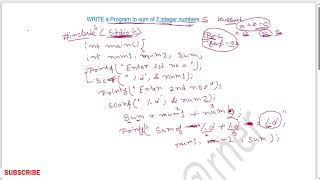 WRITE a Program to sum of 2 integer numbers
a + b = c
#include <stdio.h>
int main() {
int num1, num2, sum;
printf("Enter 1st no=");
scanf("%d", &num1);
printf("Enter 2nd no=");
scanf("%d", &num2);
Sum = num1 + num2;
printf("Sum of %d + %d = %d",
num1, num2, sum);
SUBSCRIBE